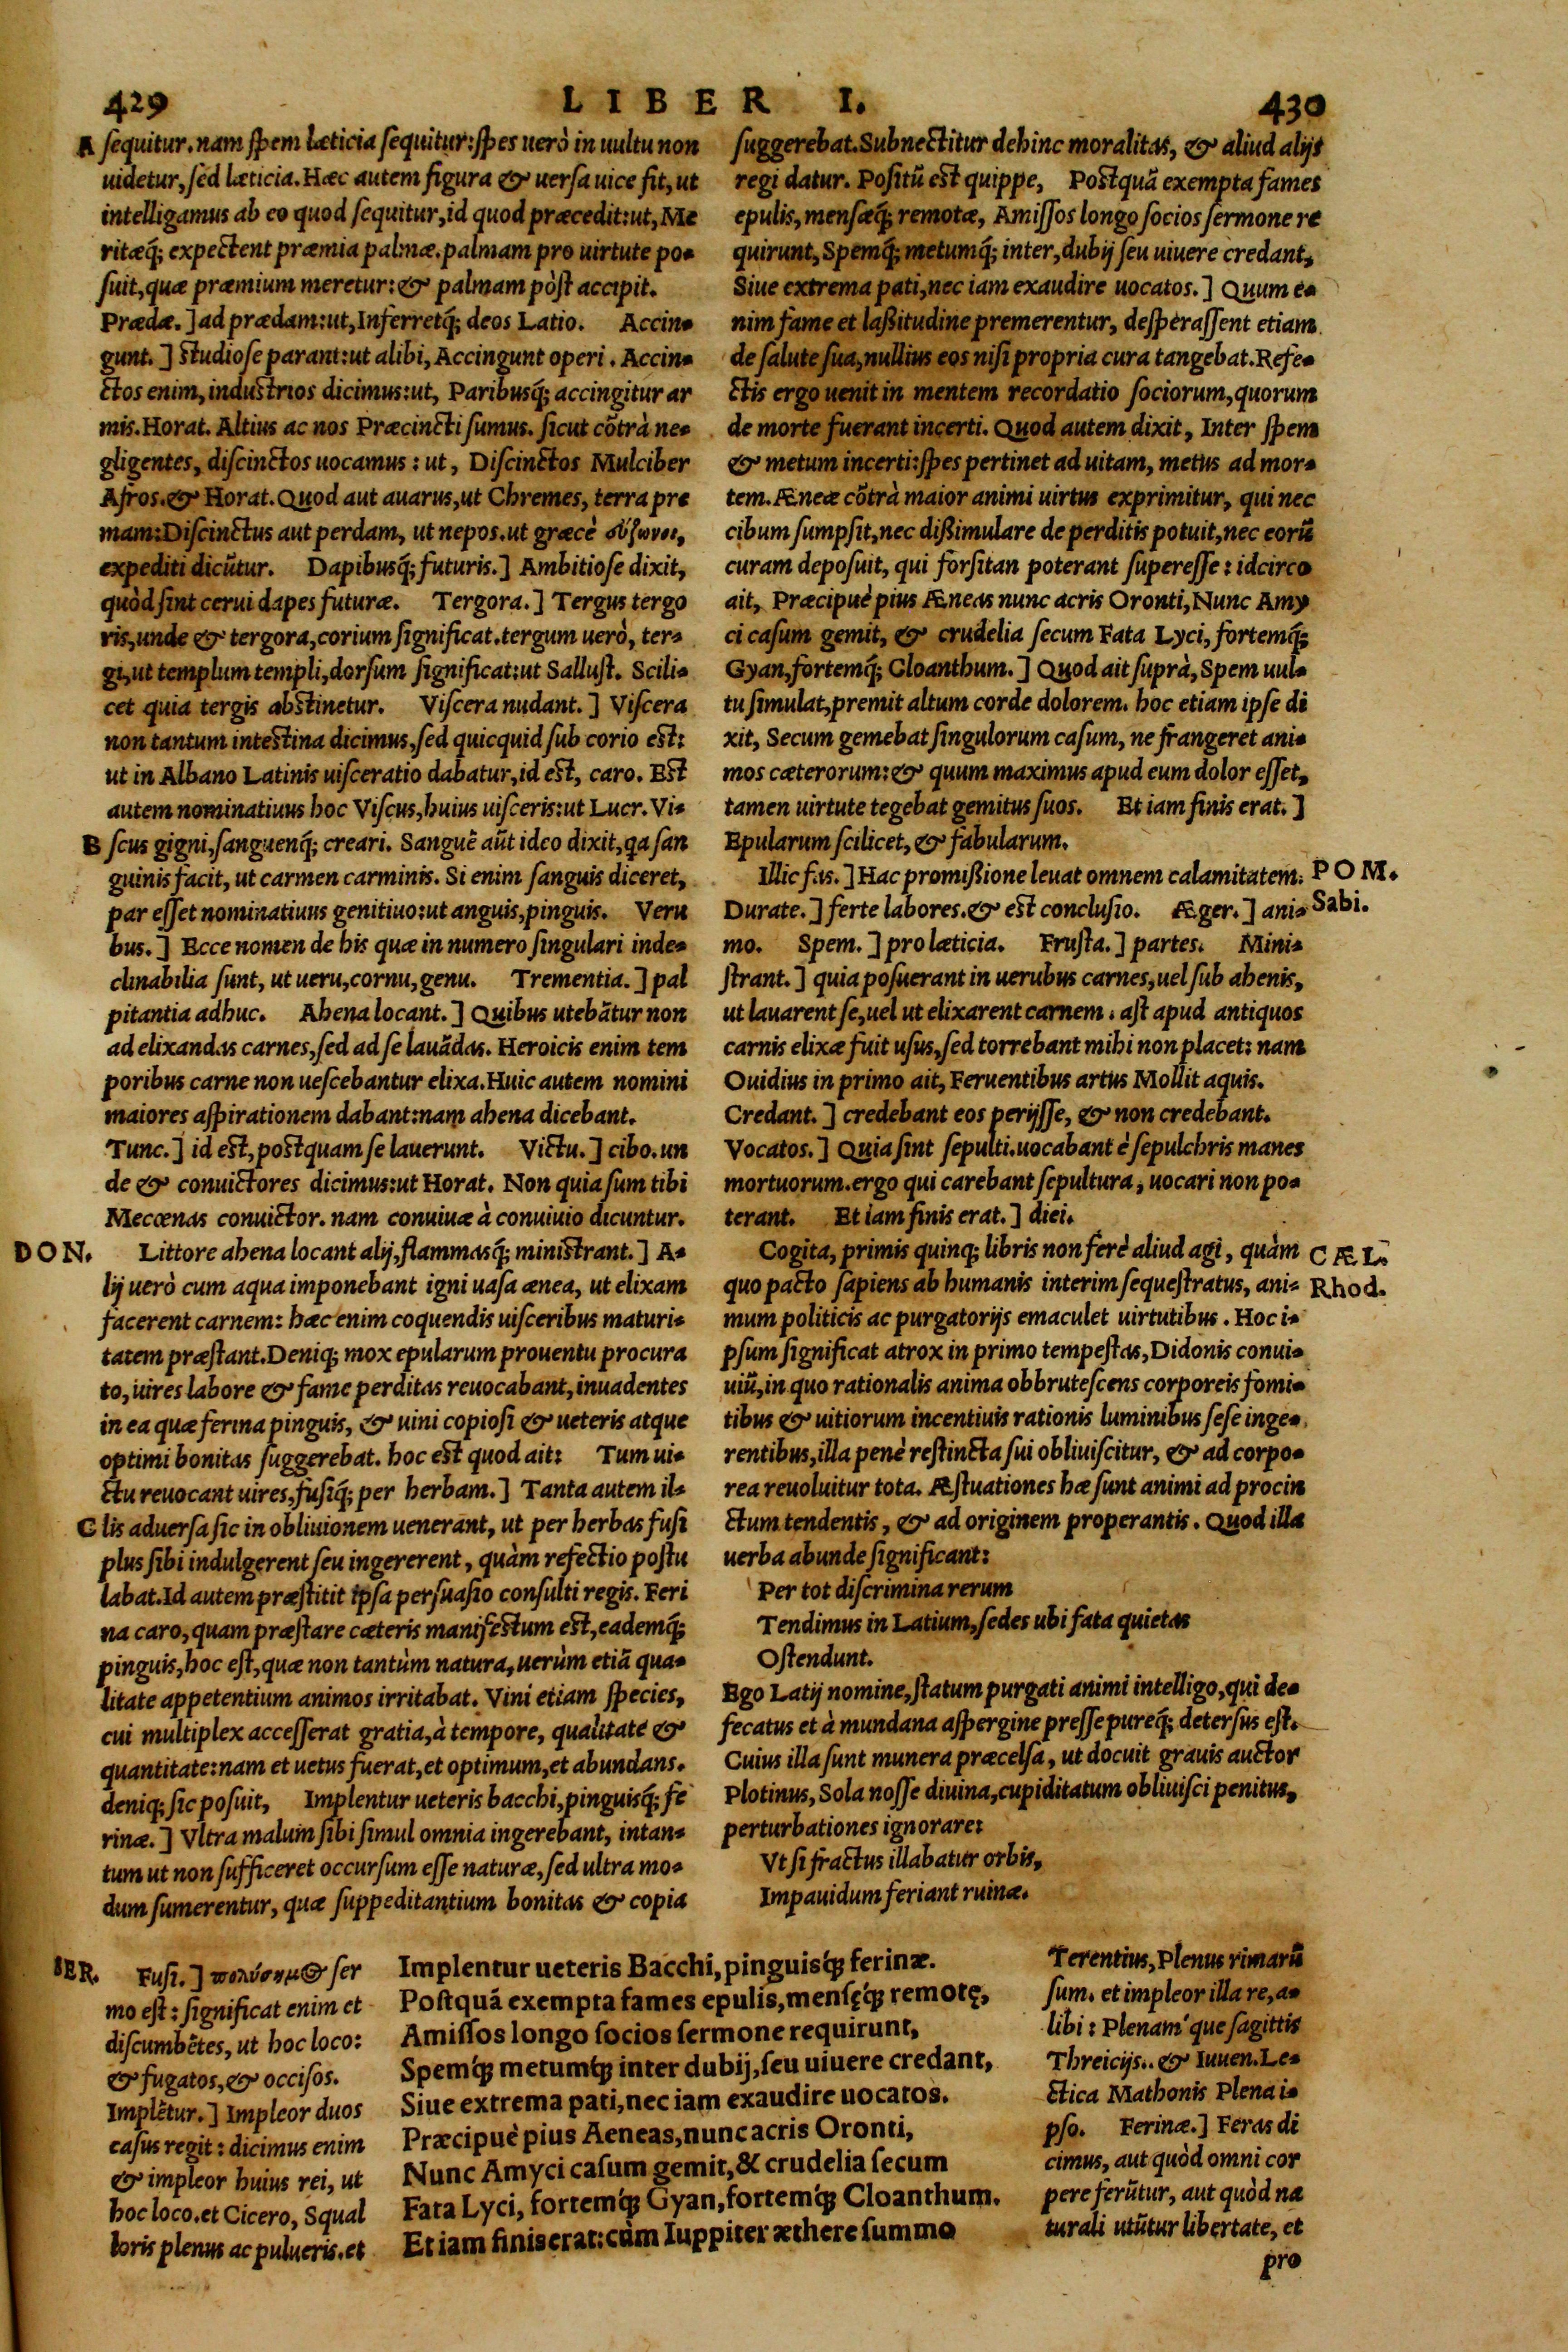 429
LIBER I.
430
A sequitur. nam spem læticia sequitur: spes uerò in uultu non
uidetur, sed læticia. Hæc autem figura & uersa uice fit, ut
intelligamus ab eo quod sequitur, id quod præcedit: ut, Me
ritæq́; expectent præmia palmæ. palmam pro uirtute po-
suit, quæ præmium meretur: & palmam pòst accipit.
Prædæ.] ad prædam: ut, Inferretq́; deos Latio. Accin-
gunt.] studiose parant: ut alibi, Accingunt operi. Accin-
ctos enim, industrios dicimus: ut, Paribusq́; accingitur ar
mis. Horat. Altius ac nos Præcincti sumus. sicut cõtrà ne-
gligentes, discinctos uocamus: ut, Discinctos Mulciber
Afros. & Horat. Quod aut auarus, ut Chremes, terra pre
mam: Discinctus aut perdam, ut nepos. ut græcè εὔζωνοι,
expediti dicũtur. Dapibusq́; futuris.] Ambitiose dixit,
quòd sint cerui dapes futuræ. Tergora.] Tergus tergo
ris, unde & tergora, corium significat. tergum uerò, ter-
gi, ut templum templi, dorsum significat: ut Sallust. Scili-
cet quia tergis abstinetur. Viscera nudant.] Viscera
non tantum intestina dicimus, sed quicquid sub corio est:
ut in Albano Latinis uisceratio dabatur, id est, caro. Est
autem nominatiuus hoc Viscus, huius uisceris: ut Lucr. Vi-
B scus gigni, sanguenq́; creari. Sanguẽ aũt ideo dixit, qa san
guinis facit, ut carmen carminis. Si enim sanguis diceret,
par esset nominatiuus genitiuo: ut anguis, pinguis. Veru
bus.] Ecce nomen de his quæ in numero singulari inde-
clinabilia sunt, ut ueru, cornu, genu. Trementia.] pal
pitantia adhuc. Ahena locant.] Quibus utebãtur non
ad elixandas carnes, sed ad se lauãdas. Heroicis enim tem
poribus carne non uescebantur elixa. Huic autem nomini
maiores aspirationem dabant: nam ahena dicebant.
Tunc.] id est, postquam se lauerunt. Victu.] cibo. un
de & conuictores dicimus: ut Horat. Non quia sum tibi
Mecœnas conuictor. nam conuiuæ à conuiuio dicuntur.
DON. Littore ahena locant alij, flammasq́; ministrant.] A-
lij uerò cum aqua imponebant igni uasa ænea, ut elixam
facerent carnem: hæc enim coquendis uisceribus maturi-
tatem præstant. Deniq; mox epularum prouentu procura
to, uires labore & fame perditas reuocabant, inuadentes
in ea quæ ferina pinguis, & uini copiosi & ueteris atque
optimi bonitas suggerebat. hoc est quod ait: Tum ui-
ctu reuocant uires, fusiq́; per herbam.] Tanta autem il-
C lis aduersa sic in obliuionem uenerant, ut per herbas fusi
plus sibi indulgerent seu ingererent, quàm refectio postu
labat. Id autem præstitit ipsa persuasio consulti regis. Feri
na caro, quam præstare cæteris manifestum est, eademq́;
pinguis, hoc est, quæ non tantùm natura, uerùm etiã qua-
litate appetentium animos irritabat. Vini etiam species,
cui multiplex accesserat gratia, à tempore, qualitate &
quantitate: nam et uetus fuerat, et optimum, et abundans.
deniq; sic posuit, Implentur ueteris bacchi, pinguisq́; fe
rinæ.] Vltra malum sibi simul omnia ingerebant, intan-
tum ut non sufficeret occursum esse naturæ, sed ultra mo-
dum sumerentur, quæ suppeditantium bonitas & copia
suggerebat. Subnectitur dehinc moralitas, & aliud alijs
regi datur. Positũ est quippe, Postquã exempta fames
epulis, mensæq́; remotæ, Amissos longo socios sermone re
quirunt, Spemq́; metumq́; inter, dubij seu uiuere credant,
Siue extrema pati, nec iam exaudire uocatos.] Quum e-
nim fame et laßitudine premerentur, desperassent etiam
de salute sua, nullius eos nisi propria cura tangebat. Refe-
ctis ergo uenit in mentem recordatio sociorum, quorum
de morte fuerant incerti. Quod autem dixit, Inter spem
& metum incerti: spes pertinet ad uitam, metus ad mor-
tem. Æneæ cõtrà maior animi uirtus exprimitur, qui nec
cibum sumpsit, nec dißimulare de perditis potuit, nec eorũ
curam deposuit, qui forsitan poterant superesse: idcirco
ait, Præcipuè pius Æneas nunc acris Oronti, Nunc Amy
ci casum gemit, & crudelia secum Fata Lyci, fortemq́;
Gyan, fortemq́; Cloanthum.] Quod ait suprà, Spem uul-
tu simulat, premit altum corde dolorem. hoc etiam ipse di
xit, Secum gemebat singulorum casum, ne frangeret ani-
mos cæterorum: & quum maximus apud eum dolor esset,
tamen uirtute tegebat gemitus suos. Et iam finis erat.]
Epularum scilicet, & fabularum.
Illic fas.] Hac promißione leuat omnem calamitatem. POM.
Durate.] ferte labores. & est conclusio. Æger.] ani- Sabi.
mo. Spem.] pro læticia. Frusta.] partes. Mini-
strant.] quia posuerant in uerubus carnes, uel sub ahenis,
ut lauarent se, uel ut elixarent carnem. ast apud antiquos
carnis elixæ fuit usus, sed torrebant mihi non placet: nam
Ouidius in primo ait, Feruentibus artus Mollit aquis.
Credant.] credebant eos perijsse, & non credebant.
Vocatos.] Quia sint sepulti. uocabant è sepulchris manes
mortuorum. ergo qui carebant sepultura, uocari non po-
terant. Et iam finis erat.] diei.
Cogita, primis quinq; libris non ferè aliud agi, quàm CÆL.
quo pacto sapiens ab humanis interim sequestratus, ani- Rhod.
mum politicis ac purgatorijs emaculet uirtutibus. Hoc i-
psum significat atrox in primo tempestas, Didonis conui-
uiũ, in quo rationalis anima obbrutescens corporeis fomi-
tibus & uitiorum incentiuis rationis luminibus sese inge-
rentibus, illa penè restincta sui obliuiscitur, & ad corpo-
rea reuoluitur tota. Æstuationes hæ sunt animi ad procin
ctum tendentis, & ad originem properantis. Quod illa
uerba abunde significant:
Per tot discrimina rerum
Tendimus in Latium, sedes ubi fata quietas
Ostendunt.
Ego Latij nomine, statum purgati animi intelligo, qui de-
fecatus et à mundana aspergine presse pureq́; detersus est.
Cuius illa sunt munera præcelsa, ut docuit grauis auctor
Plotinus, Sola nosse diuina, cupiditatum obliuisci penitus,
perturbationes ignorare:
Vt si fractus illabatur orbis,
Impauidum feriant ruinæ.
SER. Fusi.] πολύσημος ser
mo est: significat enim et
discumbẽtes, ut hoc loco:
& fugatos, & occisos.
Implẽtur.] Impleor duos
casus regit: dicimus enim
& impleor huius rei, ut
hoc loco. et Cicero, Squal
loris plenus ac pulueris. et
Implentur ueteris Bacchi, pinguisq́; ferinæ.
Postquã exempta fames epulis, mensęq́; remotę,
Amissos longo socios sermone requirunt,
Spemq́; metumq́; inter dubij, seu uiuere credant,
Siue extrema pati, nec iam exaudire uocatos.
Præcipuè pius Aeneas, nunc acris Oronti,
Nunc Amyci casum gemit, & crudelia secum
Fata Lyci, fortemq́; Gyan, fortemq́; Cloanthum.
Et iam finis erat: cùm Iuppiter æthere summo
Terentius, Plenus rimarũ
sum. et impleor illa re, a-
libi: Plenam'que sagittis
Threicijs.. & Iuuen. Le-
ctica Mathonis Plena i-
pso. Ferinæ.] Feras di
cimus, aut quòd omni cor
pere ferũtur, aut quòd na
turali utũtur libertate, et
pro